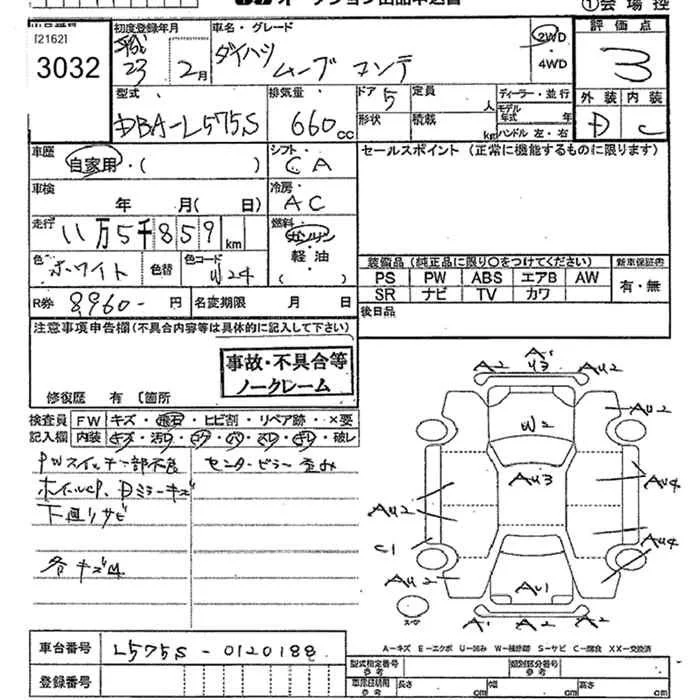 オークション出品申込書
①会場控
[2162]
3032
初度登録年月
平成
23 2月
車名・グレード
ダイハツ
ムーブ コンテ
2WD
・
4WD
評価点
3
外装 内装
D C
型式
DBA-L575S
排気量
660cc
ドア 5
形状
定員 人
積載 kg
ディーラー・並行
モデル年式 年
ハンドル 左・右
車歴
自家用・( )
シフト
C A
セールスポイント (正常に機能するものに限ります)
車検
年 月( 日)
冷房
A C
走行
11万5千859km
燃料
ガソリン
軽油
( )
色 ホワイト
色替
色コード W24
R券 8960- 円
名変期限 月 日
装備品 (純正品に限り○をつけてください)
PS PW ABS エアB AW
SR ナビ TV カワ
新車保証書
有・無
後日品
注意事項申告欄(不具合内容等は具体的に記入して下さい)
事故・不具合等
ノークレーム
修復歴 有 〔箇所
検査員
記入欄
FW キズ・飛石・ヒビ割・リペア跡・×要
内装 キズ・汚レ・コゲ・穴・スレ・ハガレ・破レ
PWスイッチ一部不良
ホイールCP、Dミラーキズ
下廻リサビ
各キズ凹
センターピラー歪み
A1
A2 U3 AU2
W2
AU2
AU3
AU4
AU2
AU4
C1
AU2
AU1
A1 A2 AU2
スペア
A-キズ E-エクボ U-凹み W-補修跡 S-サビ C-腐食 XX-交換済
車台番号 L575S-0120188
登録番号
型式指定番号
参考
類別区分番号
参考
車検証明用
参考
長さ cm 幅 cm 高さ cm